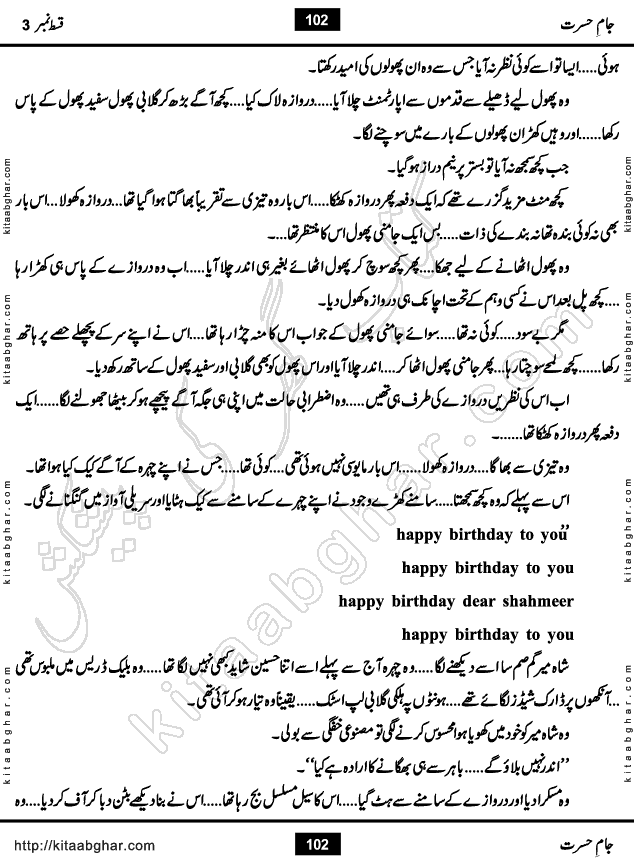 جامِ حسرت 102 قسط نمبر 3
ہوئی.....ایسا تو اسے کوئی نظر نہ آیا جس سے وہ ان پھولوں کی امید رکھتا۔
وہ پھول لیے ڈھیلے سے قدموں سے اپارٹمنٹ چلا آیا.....دروازہ لاک کیا....کچھ آگے بڑھ کر گلابی پھول سفید پھول کے پاس
رکھا......اور وہیں کھڑا ان پھولوں کے بارے میں سوچنے لگا۔
جب کچھ سمجھ نہ آیا تو بستر پر نیم دراز ہو گیا۔
کچھ منٹ مزید گزرے تھے کہ ایک دفعہ پھر دروازہ کھٹکا.....اس بار وہ تیزی سے تقریباً بھاگتا ہوا گیا تھا...دروازہ کھولا...اس بار
بھی نہ کوئی بندہ تھا نہ بندے کی ذات.....بس ایک جامنی پھول اس کا منتظر تھا...۔
وہ پھول اٹھانے کے لیے جھکا....پھر کچھ سوچ کر پھول اٹھائے بغیر ہی اندر چلا آیا.....اب وہ دروازے کے پاس ہی کھڑا رہا
....کچھ پل بعد اس نے کسی وہم کے تحت اچانک ہی دروازہ کھول دیا۔
مگر بے سود....کوئی نہ تھا.....سوائے جامنی پھول کے جو اب اس کا منہ چڑا رہا تھا....اس نے اپنے سر کے پچھلے حصے پر ہاتھ
رکھا......کچھ لمحے سوچتا رہا...پھر جامنی پھول اٹھا کر....اندر چلا آیا اور اس پھول کو بھی گلابی اور سفید پھول کے ساتھ رکھ دیا۔
اب اس کی نظریں دروازے کی طرف ہی تھیں.....وہ اضطرابی حالت میں اپنی ہی جگہ آگے پیچھے ہو کر بیٹھا جھولنے لگا......ایک
دفعہ پھر دروازہ کھٹکا تھا.......۔
وہ تیزی سے بھاگا....دروازہ کھولا.....اس بار مایوسی نہیں ہوئی تھی....کوئی تھا.....جس نے اپنے چہرہ کے آگے کیک کیا ہوا تھا۔
اس سے پہلے کہ وہ کچھ سمجھتا.....سامنے کھڑے وجود نے اپنے چہرے کے سامنے سے کیک ہٹایا اور سریلی آواز میں گنگنانے لگی۔
''happy birthday to you
happy birthday to you
happy birthday dear shahmeer
happy birthday to you
شاہ میر گم صم سا اسے دیکھنے لگا.....وہ چہرہ آج سے پہلے اسے اتنا حسین شاید کبھی نہیں لگا تھا...وہ بلیک ڈریس میں ملبوس تھی
...آنکھوں پر ڈارک شیڈز لگائے تھے....ہونٹوں پہ ہلکی گلابی لپ اسٹک.....یقیناً وہ تیار ہو کر آئی تھی۔
وہ شاہ میر کو خود میں کھویا ہوا محسوس کرنے لگی تو مصنوعی خفگی سے بولی۔
''اندر نہیں بلاؤ گے.....باہر سے ہی بھگانے کا ارادہ ہے کیا''۔
وہ مسکرا دیا اور دروازے کے سامنے سے ہٹ گیا.....اس کا سیل مسلسل بج رہا تھا...اس نے بنا دیکھے بٹن دبا کر آف کر دیا....وہ
http://kitaabghar.com 102 جامِ حسرت
kitaabghar.com
kitaabghar.com
kitaabghar.com
kitaabghar.com
kitaabghar.com
kitaabghar.com
kitaabghar.com
kitaabghar.com
کتاب گھر کی پیشکش
kitaabghar.com